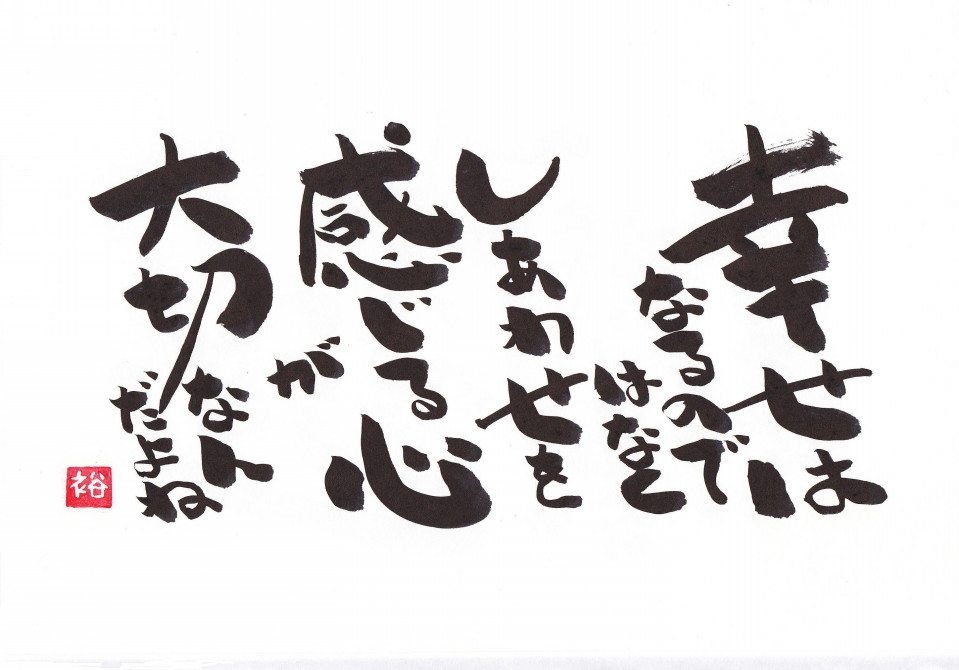 幸せは
なるので
はなく
しあわせを
感じる心
が
大切
なん
だよね
裕